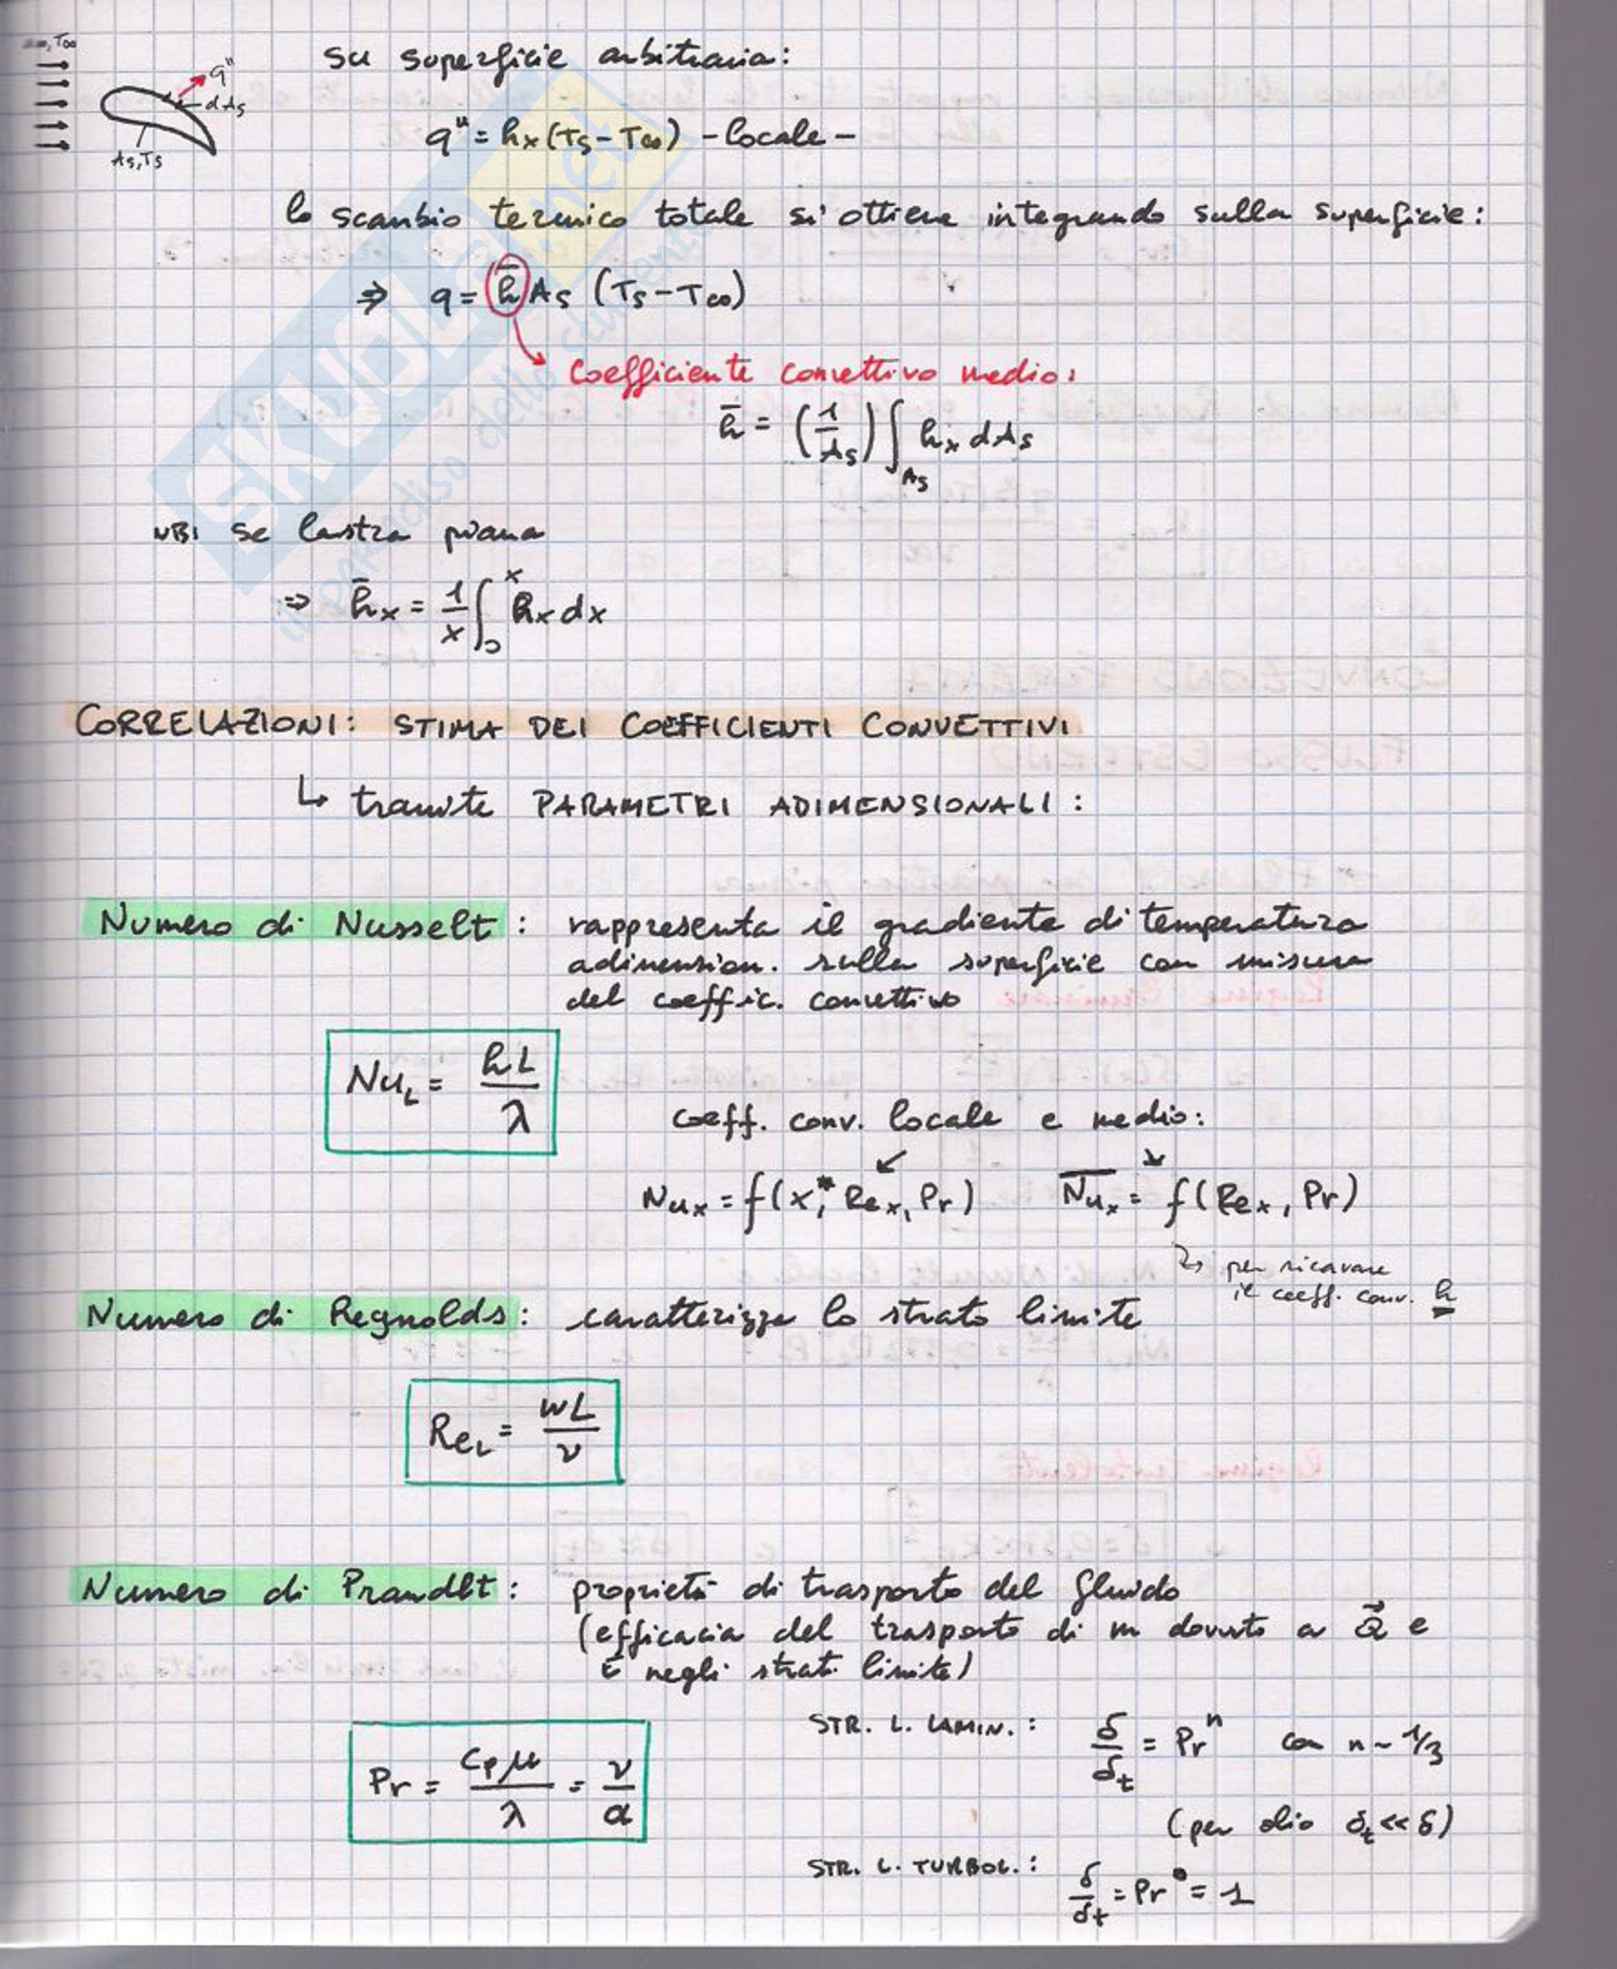 T∞
q"
dAs
As, Ts
su superficie arbitraria:
q" = hx (Ts - T∞) - locale -
lo scambio termico totale si ottiene integrando sulla superficie:
⇒ q = h̄ As (Ts - T∞)
coefficiente convettivo medio:
h̄ = (1/As) ∫As hx dAs
NB: se lastra piana
⇒ h̄x = 1/x ∫0^x hx dx
CORRELAZIONI: STIMA DEI COEFFICIENTI CONVETTIVI
↳ tramite PARAMETRI ADIMENSIONALI:
Numero di Nusselt: rappresenta il gradiente di temperatura
adimension. sulla superficie con misura
del coeffic. convettivo
NuL = hL/λ
coeff. conv. locale e medio:
Nux = f(x*, Rex, Pr)   N̄ūx = f(Rex, Pr)
↳ per ricavare
il coeff. conv. h
Numero di Reynolds: caratterizza lo strato limite
ReL = wL/ν
Numero di Prandlt: proprietà di trasporto del fluido
(efficacia del trasporto di m dovuto a Q⃗ e
negli strati limite)
STR. L. LAMIN.: δ/δt = Pr^n con n ~ 1/3
Pr = cp μ/λ = ν/α
(per olio δt << δ)
STR. L. TURBOL.: δ/δt = Pr^0 = 1
SKUOLA.net
il paradiso dello studente